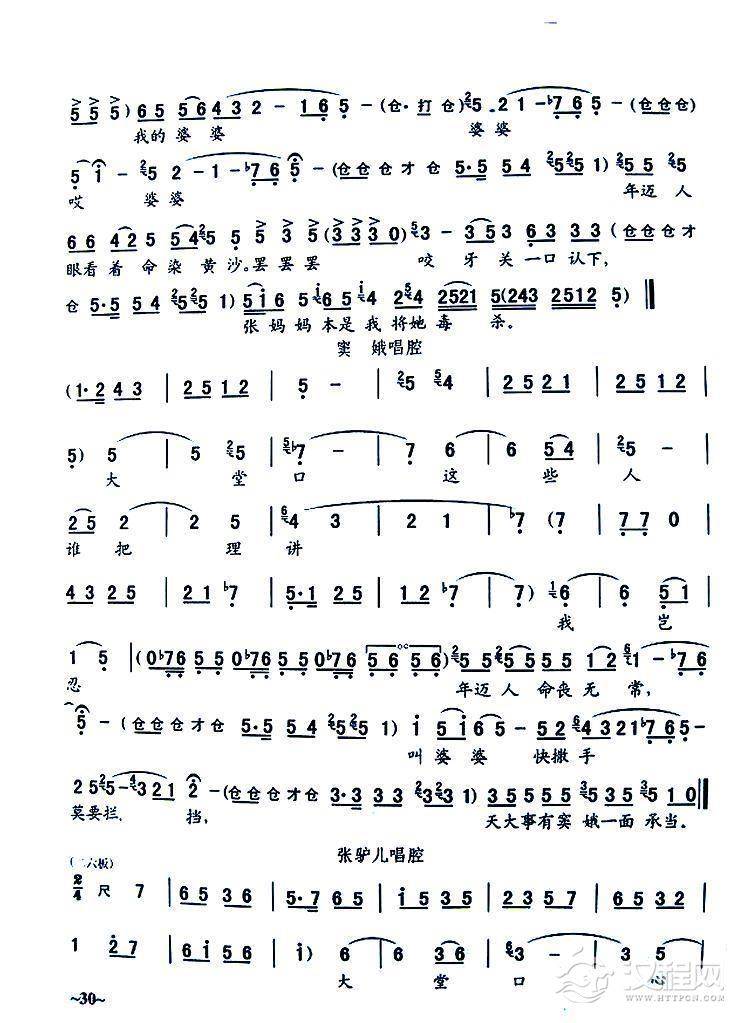 5 5 5) 6 5 5 6 4 3 2 - 1 6 5 - (仓·打 仓) 5. 2 1 - ♭7 6 5 - (仓 仓 仓)
我的 婆 婆 婆 婆
5 i - 5 2 - 1 - ♭7 6 5 - (仓 仓 仓 才 仓 5·5 5 4 5 5 1) 5 2 5
哎 婆 婆 年 迈 人
6 6 4 2 5 5 5 4 5 5 3 5 (3 3 3 0) 3 - 3 5 3 6 3 3 (仓 仓 仓 才
眼看 着 命 染 黄 沙。罢 罢 罢 咬 牙 关 一口 认下,
仓 5·5 5 4 5 5 1) 5 i 6 5 4 5 4 2521 5(243 2512 5)
张 妈 妈 本 是 我 将 她 毒 杀。
窦 娥唱腔
(1·2 4 3 | 2 5 1 2 | 5 - | 5 4 | 2 5 2 1 | 2 5 1 2 |
5) 5 | 5 5 | ♭7 - | 4 6 | 6 5 4 | 5 - |
大 堂 口 这 些 人
2 5 2 | 2 5 | 4 3 | 2 1 | ♭7 (♭7 | 7 7 0 |
谁 把 理 讲
4 3 2 5 | 2 1 ♭7 | 5·1 2 5 | 4 2 1 | ♭7 ♭7) | 6 6 | 5 1 |
我 岂
1 5 | (0♭76 5 5 0♭76 5 5 0♭76 5 5 5 6 5 6) 5 5 5 5 1 2 1 - ♭7 6
忍 年迈 人 命丧 无 常,
5 - (仓 仓 仓 才 仓 5·5 5 4 5 5 1) i 5 i 6 5 - 5 2 4 3 2 1 ♭7 6 5 -
叫 婆 婆 快撒 手
2 5 5 - 3 2 1 2 - (仓 仓 仓 才 仓 3·3 3 2 3 2 3 1) 3 5 5 5 5 5 3 5 5 5 1 0
莫要拦, 挡, 天大事有 窦 娥一面 承当。
张驴儿唱腔
(二六板)
2/4 尺 7 | 6 5 3 6 | 5·7 6 5 | i 5 3 5 | 6 i 5 6 | 3 2 3 5 |
1 2 7 | 6 i 5 6 | i) 6 | 6 3 6 | 3 - | 5 6
大 堂 口
~30~
汉程网
WWW.HTTPCN.COM